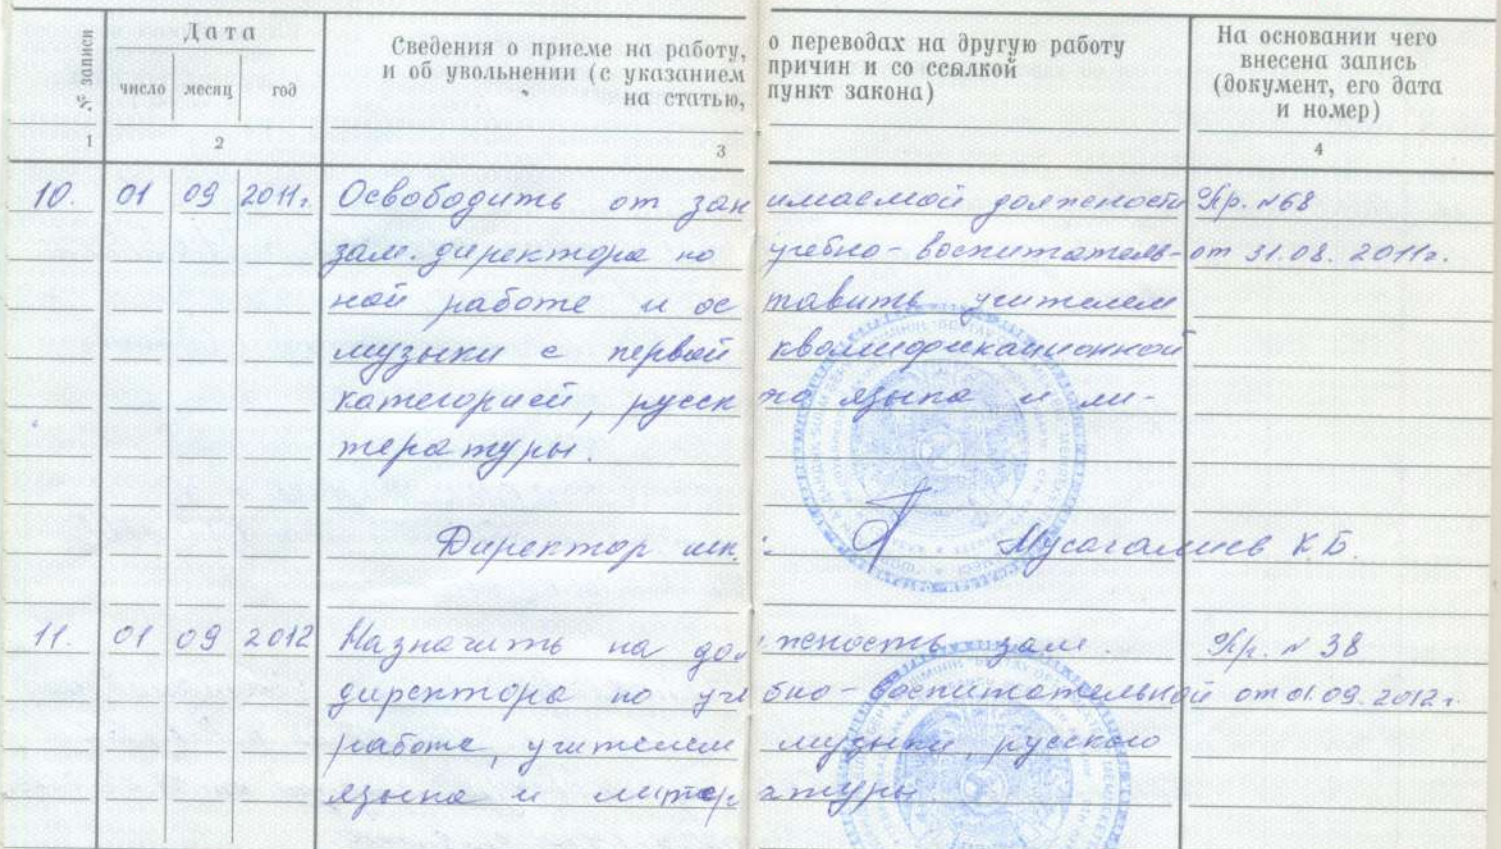 № записи
Дата
число месяц год
Сведения о приеме на работу, о переводах на другую работу
и об увольнении (с указанием причин и со ссылкой
на статью, пункт закона)
На основании чего
внесена запись
(документ, его дата
и номер)
1 2 3 4
10. 01 09 2011г. Освободить от занимаемой должности Пр. №68
зам. директора по учебно-воспитатель- от 31.08.2011г.
ной работе и оставить учителем
музыки с первой квалификационной
категорией, русского языка и ли-
тературы.
Директор шк.: Мусагалиев К.Б.
11. 01 09 2012 Назначить на должность зам. Пр. № 38
директора по учебно-воспитательной от 01.09.2012г.
работе, учителем музыки, русского
языка и литературы